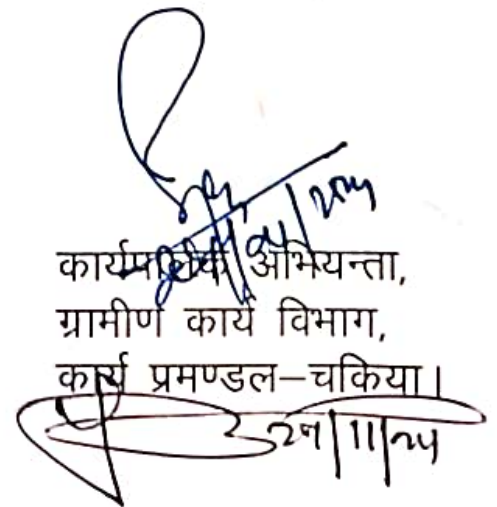 कार्यपालक अभियन्ता,
ग्रामीण कार्य विभाग,
कार्य प्रमण्डल–चकिया।
29/11/24